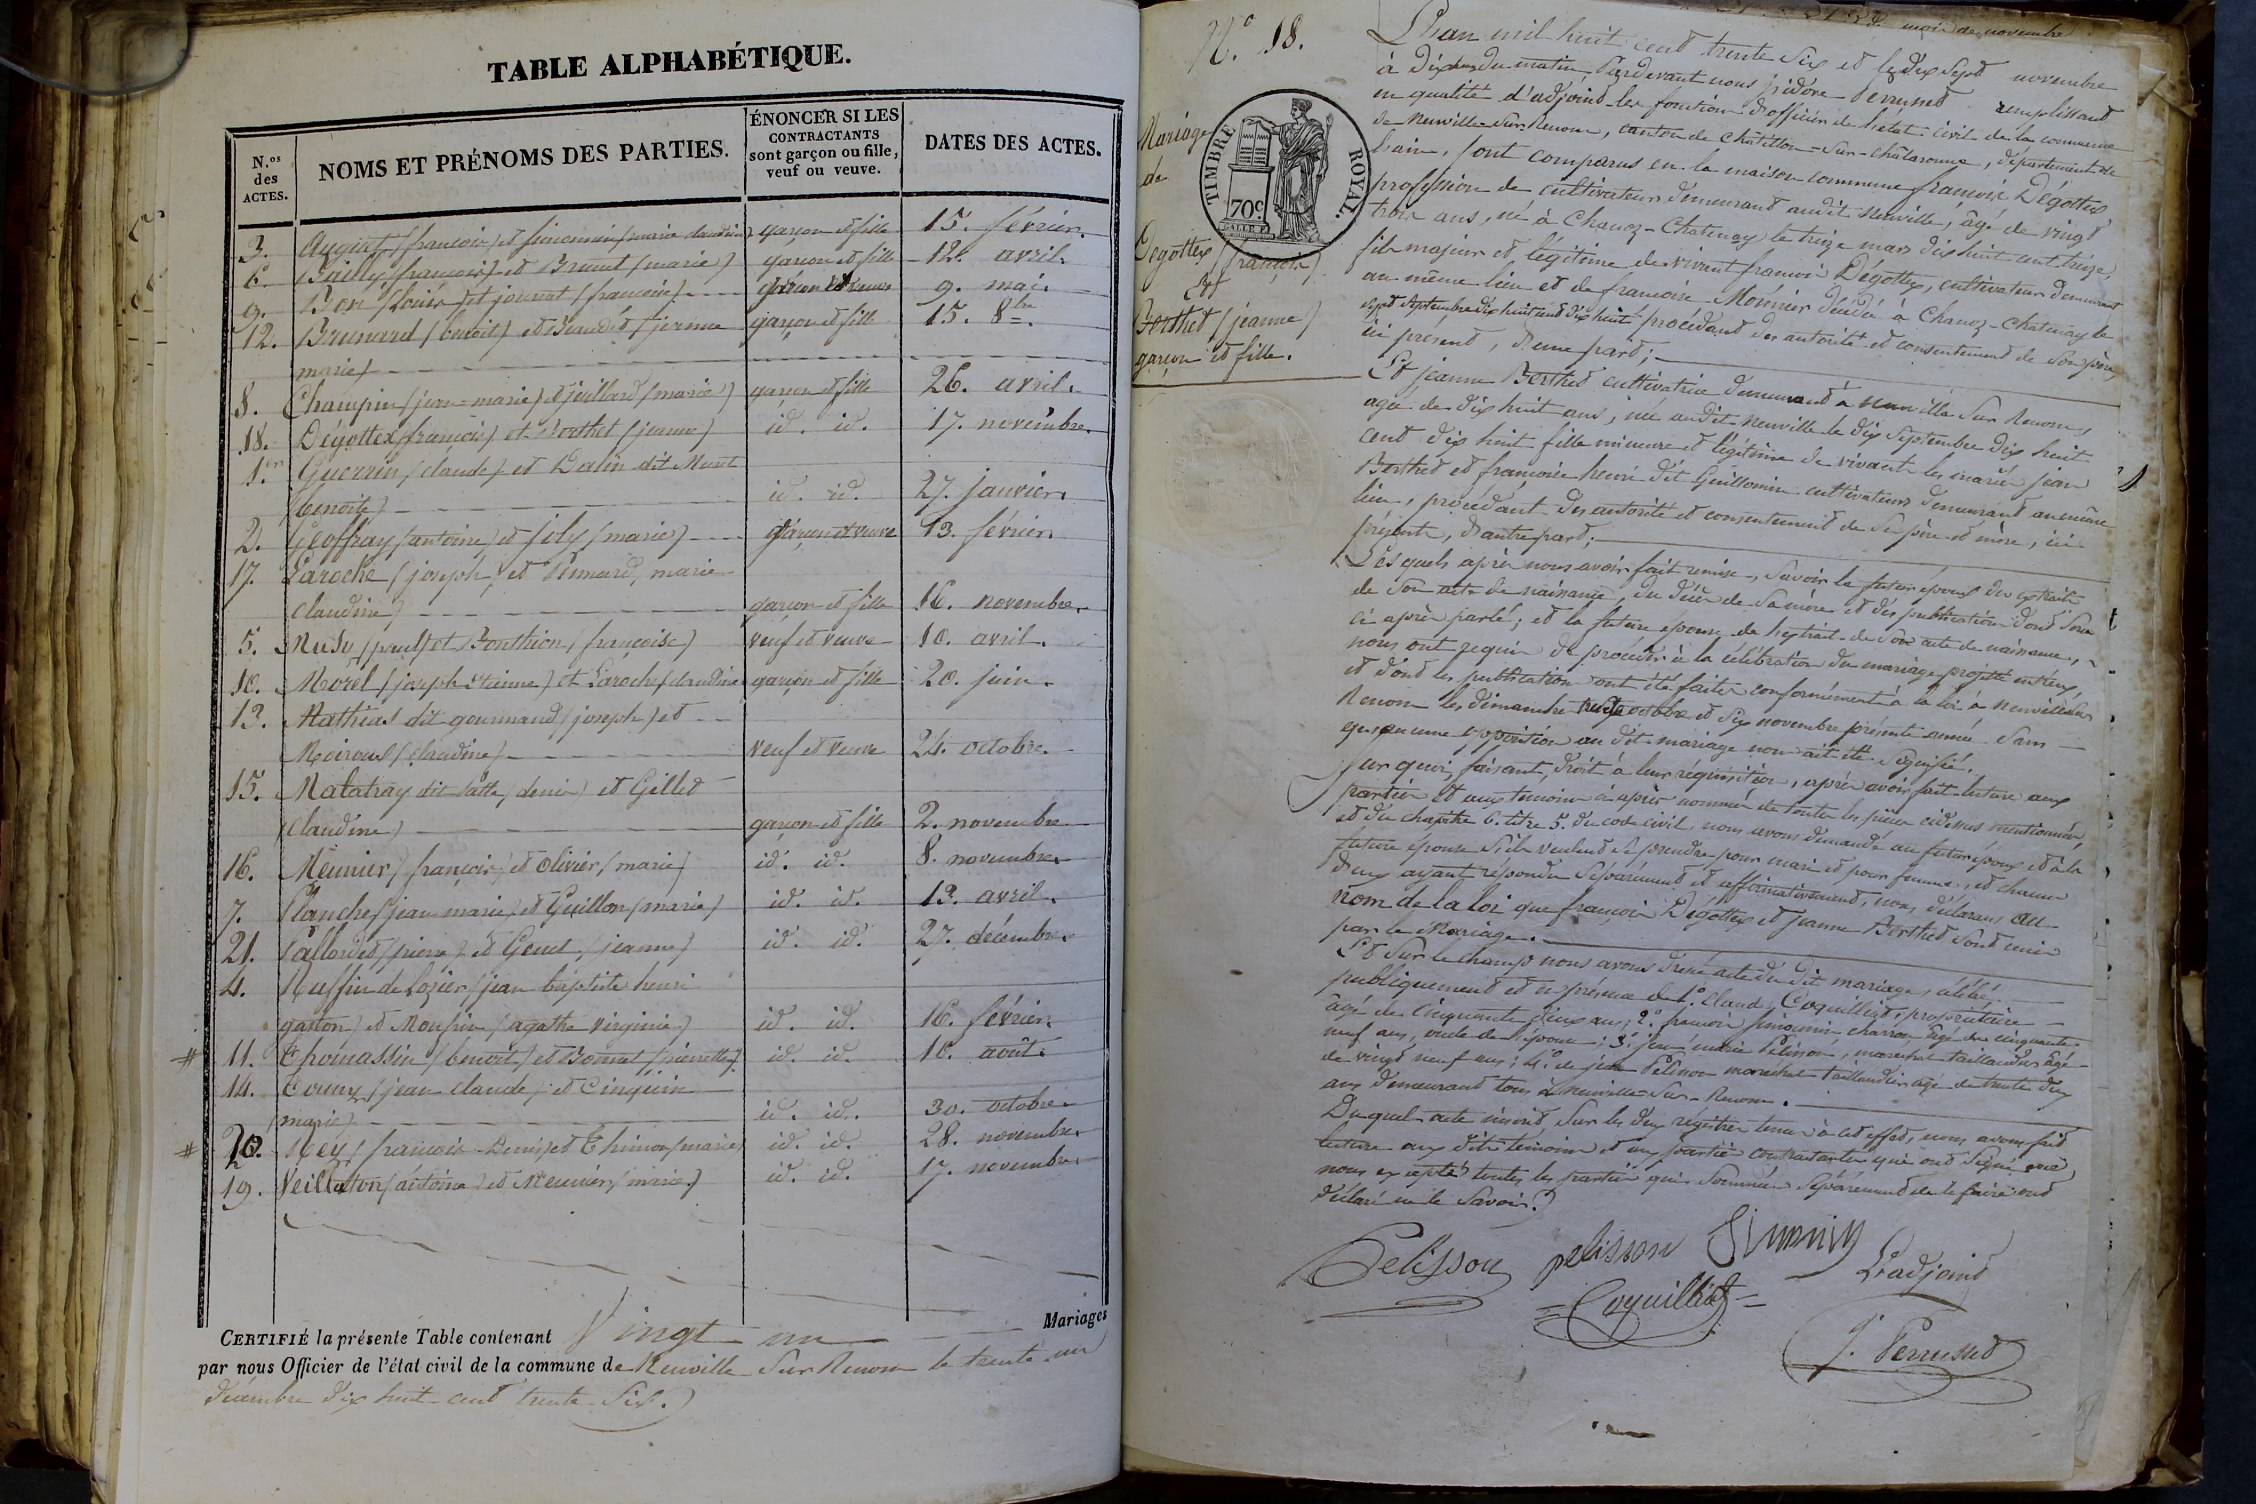 TABLE ALPHABÉTIQUE.
N.os des ACTES.
NOMS ET PRÉNOMS DES PARTIES.
ÉNONCER SI LES CONTRACTANTS sont garçon ou fille, veuf ou veuve.
DATES DES ACTES.
3. (françois) et (marie claudine) garçon et fille 15. février.
6. Bailly (françois) et Brunet (marie) garçon et fille 12. avril.
9. Bon (louis) et journet (françoise) garçon et veuve 9. mai.
12. Brunard (benoit) et (jerinne garçon et fille 15. 8bre.
marie)
8. Champin (jean-marie) et juillard (marie) garçon et fille 26. avril.
18. Dégottex (françois) et Berthet (jeanne) id. id. 17. novembre.
1er Guerrin (claude) et dit Munet
(benoite) id. id. 27. janvier.
2. Geoffray (antoine) et joly (marie) garçon et veuve 13. février.
17. Laroche (joseph) et marie
claudine) garçon et fille 16. novembre.
5. (paul) et Bonthion (françoise) veuf et veuve 10. avril.
10. Morel (joseph etienne) et Laroche (claudine garçon et fille 20. juin.
13. Mathias dit gourmand (joseph) et
(claudine) veuf et veuve 24. octobre.
15. Malatray dit (denis) et Gillet
(claudine) garçon et fille 2. novembre
16. Meunier (françois) et Olivier (marie) id. id. 8. novembre.
7. Planche (jean marie) et Guillon (marie) id. id. 13. avril.
21. (pierre) et Genet (jeanne) id. id. 27. décembre.
4. Ruffin de (jean baptiste henri
gaston) et (agathe virginie) id. id. 16. février.
# 11. Thoinassin (benoit) et Bonnet (pierrette) id. id. 10. août.
14. (jean claude) et Cinquin
(marie) id. id. 30. octobre.
# 20. (françois Denis) et Thinon (marie) id. id. 28. novembre.
19. Veilleton (antoine) et Meunier (marie) id. id. 17. novembre.
CERTIFIÉ la présente Table contenant Vingt un Mariages
par nous Officier de l'état civil de la commune de Neuville Sur Renom le trente un
décembre dix huit cent trente six.
N.° 18.
Mariage
de
Dégottex (françois)
Et
Berthet (jeanne)
garçon et fille.
TIMBRE ROYAL.
70c
mois de novembre
L'han mil huit cent trente Six et le dix Sept novembre
à dix heures du matin Pardevant nous isidore Perrusset remplissant
en qualité d'adjoint les fonction d'officier de l'état civil de la commune
de Neuville Sur Renom, canton de Châtillon-Sur-Chalaronne, département de
l'ain, Sont comparus en la maison commune françois Dégottex
profession de cultivateur demeurant audit Neuville, âgé de vingt
trois ans, né à Chanoz-Chatenay le treize mars dix huit cent treize,
fils majeur et légitime de vivant françois Dégottex, cultivateur demeurant
au même lieu et de françoise Monnier décédée à Chanoz-Chatenay le
sept Septembre dix huit cent dix huit procédant des autorité et consentement de Son père,
ici présent, d'une part;
Et jeanne Berthet cultivatrice demeurant à Neuville Sur Renom,
agée de dix huit ans, née audit Neuville le dix Septembre dix huit
cent dix huit fille mineure et légitime de vivants les mariés jean
Berthet et françoise henri dit Guillomin cultivateurs demeurant au même
lieu, procédant des autorité et consentement de Ses père et mère, ici
présents, d'autre part;
Lesquels après nous avoir fait remise, Savoir le futur époux des extraits
de Son acte de naissance, du décès de Sa mère et des publications dont Sera
ci après parlé; et la future epouse de l'extrait de Son acte de naissance,
nous ont requis de procéder à la célébration du mariage projetté entreux
et dont les publication ont été faites conformément à la loi à Neuville Sur
Renom les dimanche trente octobre et Six novembre présente année Sans
qu'aucune opposition au dit mariage nous ait été Signifié.
Sur quoi, faisant droit à leur réquisition, après avoir fait lecture aux
parties et aux temoins ci après nommés de toutes les pièces cidessus mentionnées,
et du chapitre 6. titre 5. du code civil, nous avons demandé au futur époux et à la
future épouse S'ils veulent Se prendre pour mari et pour femme, et chacun
d'eux ayant répondu Séparément et affirmativement, nous déclarons au
nom de la loi que françois Dégottex et jeanne Berthet Sont unis
par le Mariage.
Et Sur le champ nous avons dressé acte du dit mariage, célébré
publiquement et en présence de 1°. Claude Coquilliat, propriétaire
âgé de Cinquante deux ans; 2°. françois Simonin, charron âgé de cinquante
neuf ans, oncle de l'époux; 3°. jean marie Pélisson, marechal taillandier âgé
de vingt neuf ans; 4°. de jean Pélisson marechal taillandier âgé de trente dix
ans demeurant tous à Neuville Sur Renom.
Duquel acte inscrit Sur les deux régistres tenus à cet effet, nous avons fait
lecture aux dits témoins et aux parties contractantes qui ont Signé avec
nous excepté toutes les parties qui Sommées Séparément de le faire ont
déclaré ne le Savoir.
Pelisson pelisson Simonin
L'adjoint
Coquilliat
J. Perrusset